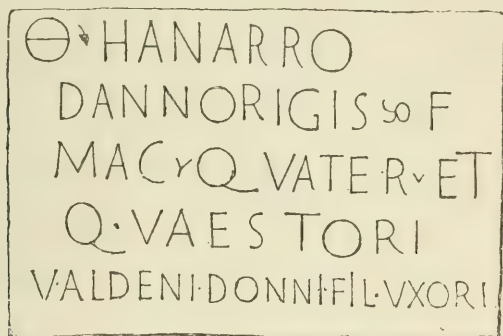 Θ HANARRO
DANNORIGIS F
MAC Q VATE·R ET
Q·VAESTORI
V·ALDENI·DONNI·FIL·VXORI